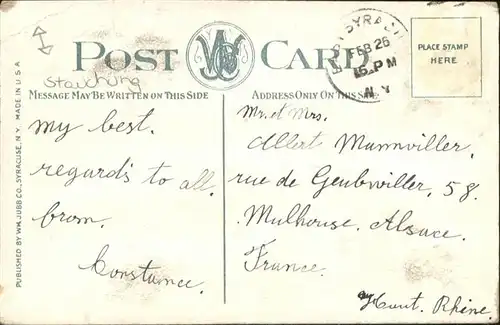 POST CARD
WJB
E. SYRACU
FEB 26
PM
N.Y.
PLACE STAMP
HERE
Stauchung
MESSAGE MAY BE WRITTEN ON THIS SIDE
ADDRESS ONLY ON THIS SIDE
PUBLISHED BY WM. JUBB CO., SYRACUSE, N.Y. MADE IN U.S.A
My best.
regard's to all.
from.
Constance.
Mr. et Mrs.
Albert Mumviller.
rue de Geubwiller, 58.
Mulhouse. Alsace.
France.
Haut. Rhine.